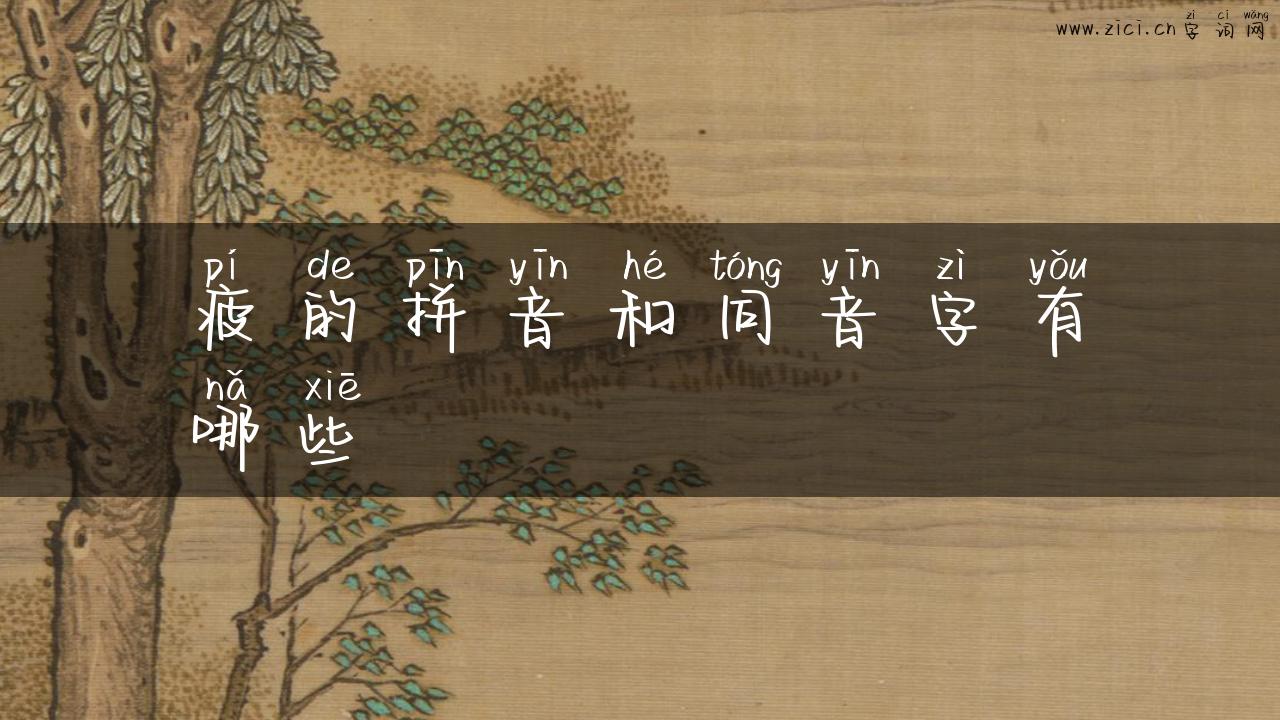 zì cí wǎng
www.zici.cn 字词网
pí de pīn yīn hé tóng yīn zì yǒu
疲的拼音和同音字有
nǎ xiē
哪些